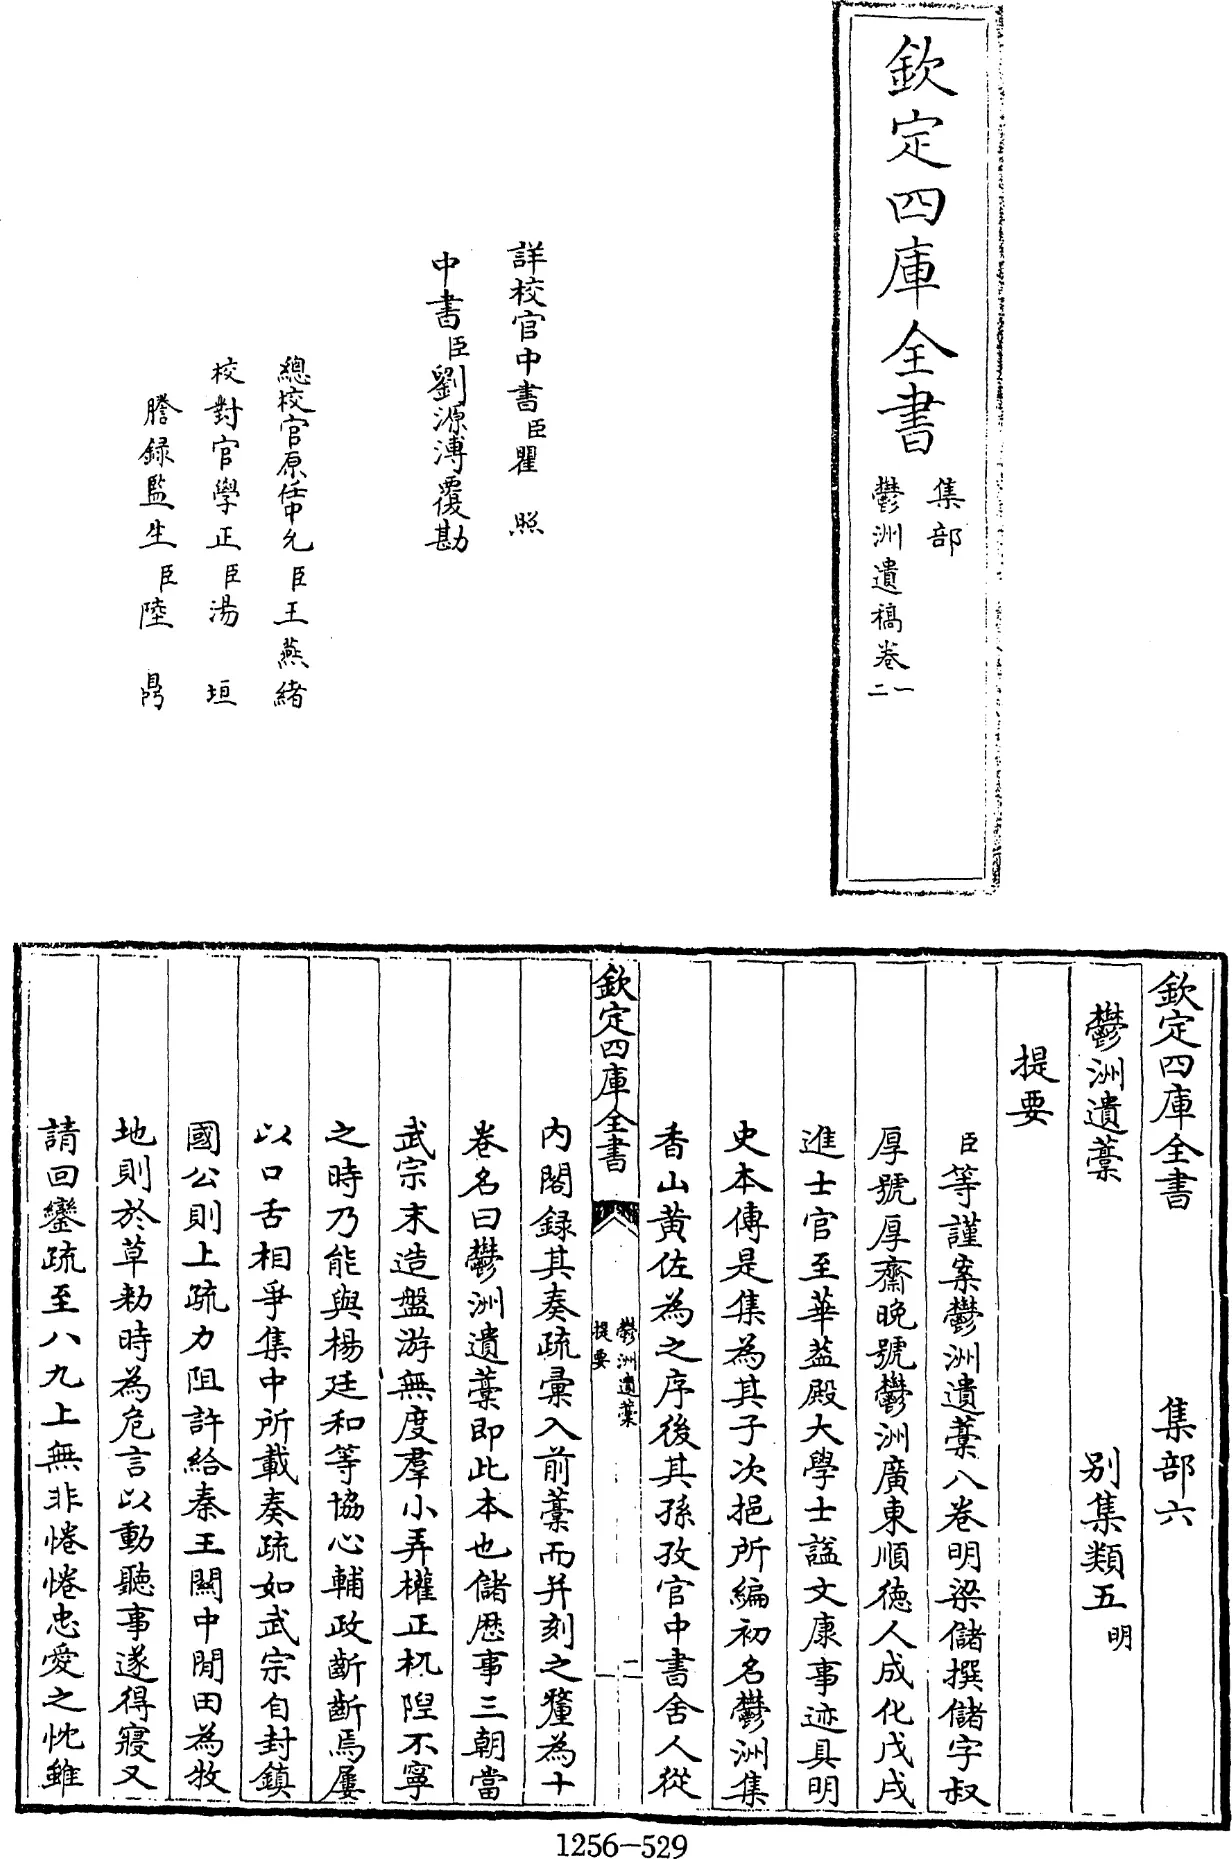 欽定四庫全書
集部
鬱洲遺稿卷一
二
詳校官中書臣瞿照
中書臣劉源溥覆勘
總校官原任中允臣王燕緒
校對官學正臣湯垣
謄録監生臣陸
欽定四庫全書 集部六
鬱洲遺藁 别集類五明
提要
臣等謹案鬱洲遺藁八卷明梁儲撰儲字叔
厚號厚齋晚號鬱洲廣東順德人成化戊戌
進士官至華葢殿大學士諡文康事迹具明
史本傳是集為其子次挹所編初名鬱洲集
香山黄佐為之序後其孫孜官中書舍人從
欽定四庫全書
鬱洲遺藁
提要
二
内閣録其奏疏彚入前藁而并刻之釐為十
卷名曰鬱洲遺藁即此本也儲歴事三朝當
武宗末造盤游無度羣小弄權正杌隉不寧
之時乃能與楊廷和等協心輔政斷斷焉屢
以口舌相爭集中所載奏疏如武宗自封鎮
國公則上疏力阻許給秦王關中閒田為牧
地則於草勅時為危言以動聽事遂得寢又
請回鑾疏至八九上無非惓惓忠愛之忱雖
1256-529